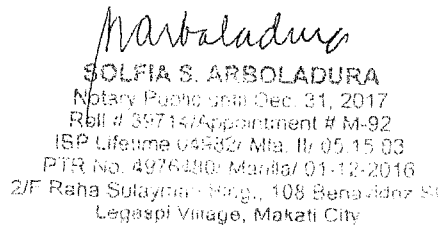 SOLFIA S. ARBOLADURA
Notary Public until Dec. 31, 2017
Roll # 39714/Appointment # M-92
IBP Lifetime 04982/ Mla. II/ 05.15.03
PTR No. 4976480/ Manila/ 01-12-2016
2/F Raha Sulayman Bldg., 108 Benavidez St
Legaspi Village, Makati City